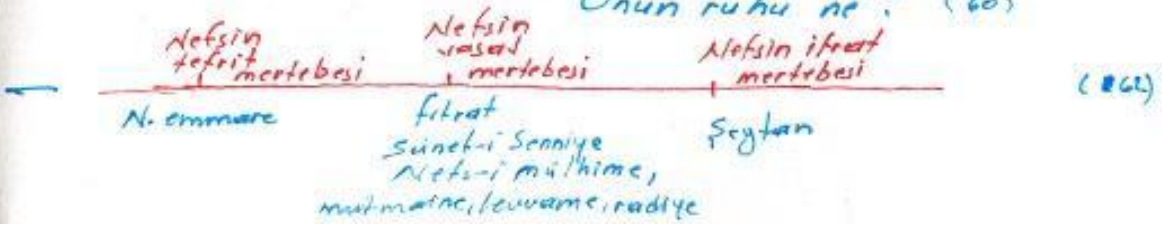 Onun ruhu ne? (60)
Nefsin tefrit mertebesi
Nefsin vasad mertebesi
Nefsin ifrat mertebesi
(62)
N. emmare
fıtrat
Sünet-i Senniye
Nefs-i mülhime,
mutmaine, levvame, radiye
Şeytan